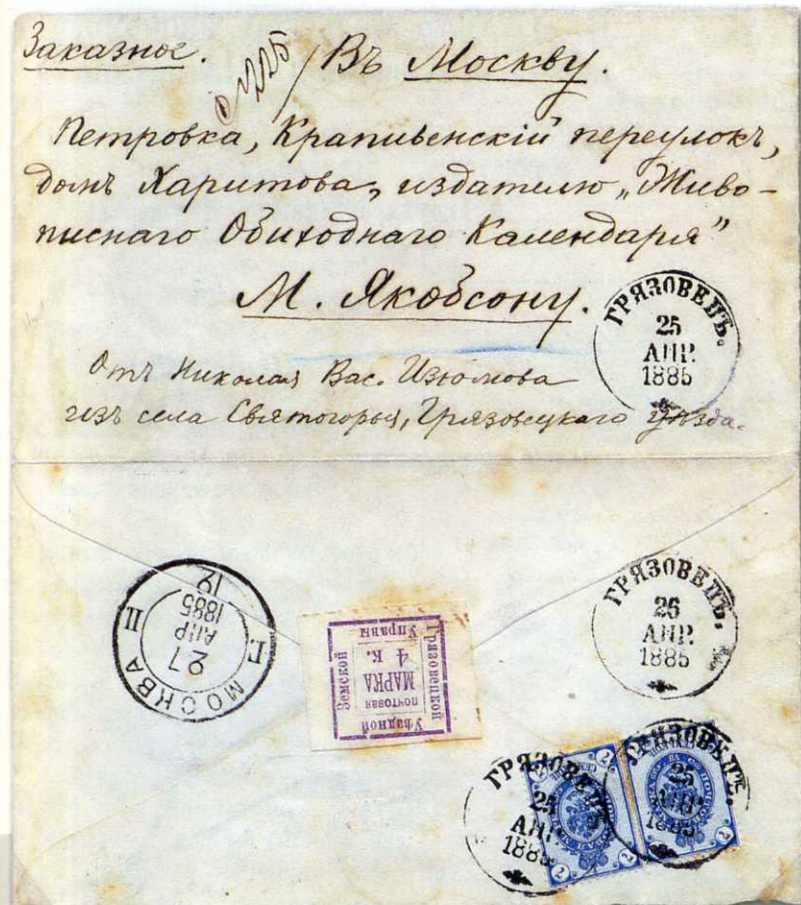 Заказное. № 225 Въ Москву.
Петровка, Крапивенскій переулокъ,
домъ Харитова, издателю „Живо-
писнаго Обиходнаго Календаря"
М. Якобсону.
ГРЯЗОВЕЦЪ.
25
АПР.
1885
Отъ Николая Вас. Изюмова
изъ села Святогорья, Грязовецкаго уѣзда.
Г. МОСКВА II
27
АПР
1885
12
Грязовецкой
Уѣздной
Земской
Управы
ПОЧТОВАЯ
МАРКА
4 К.
ГРЯЗОВЕЦЪ.
26
АПР.
1885
ГРЯЗОВЕЦЪ.
25
АПР.
1885
ГРЯЗОВЕЦЪ.
25
АПР.
1885
2
2
2
2